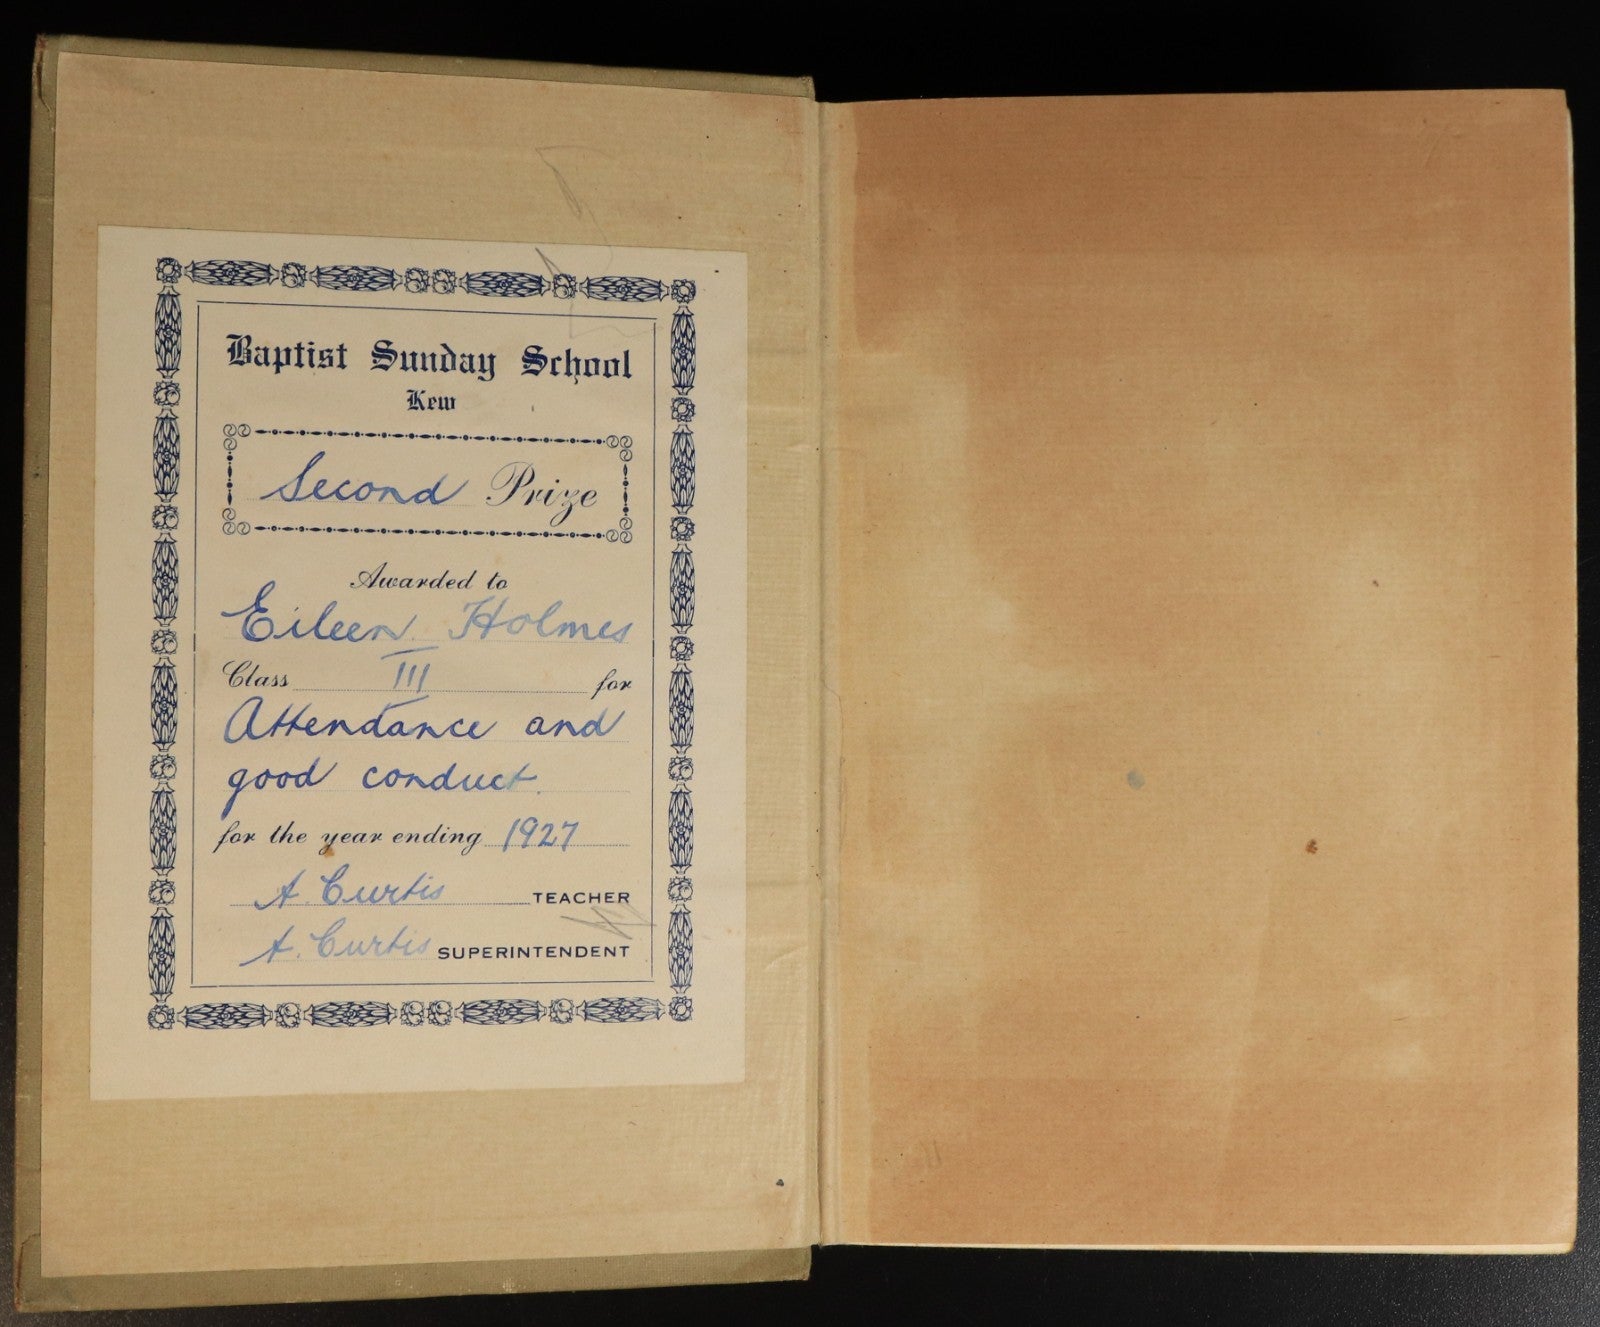 Baptist Sunday School
Kew
Second Prize
Awarded to
Eileen Holmes
Class III for
Attendance and
good conduct.
for the year ending 1927
A. Curtis TEACHER
A. Curtis SUPERINTENDENT